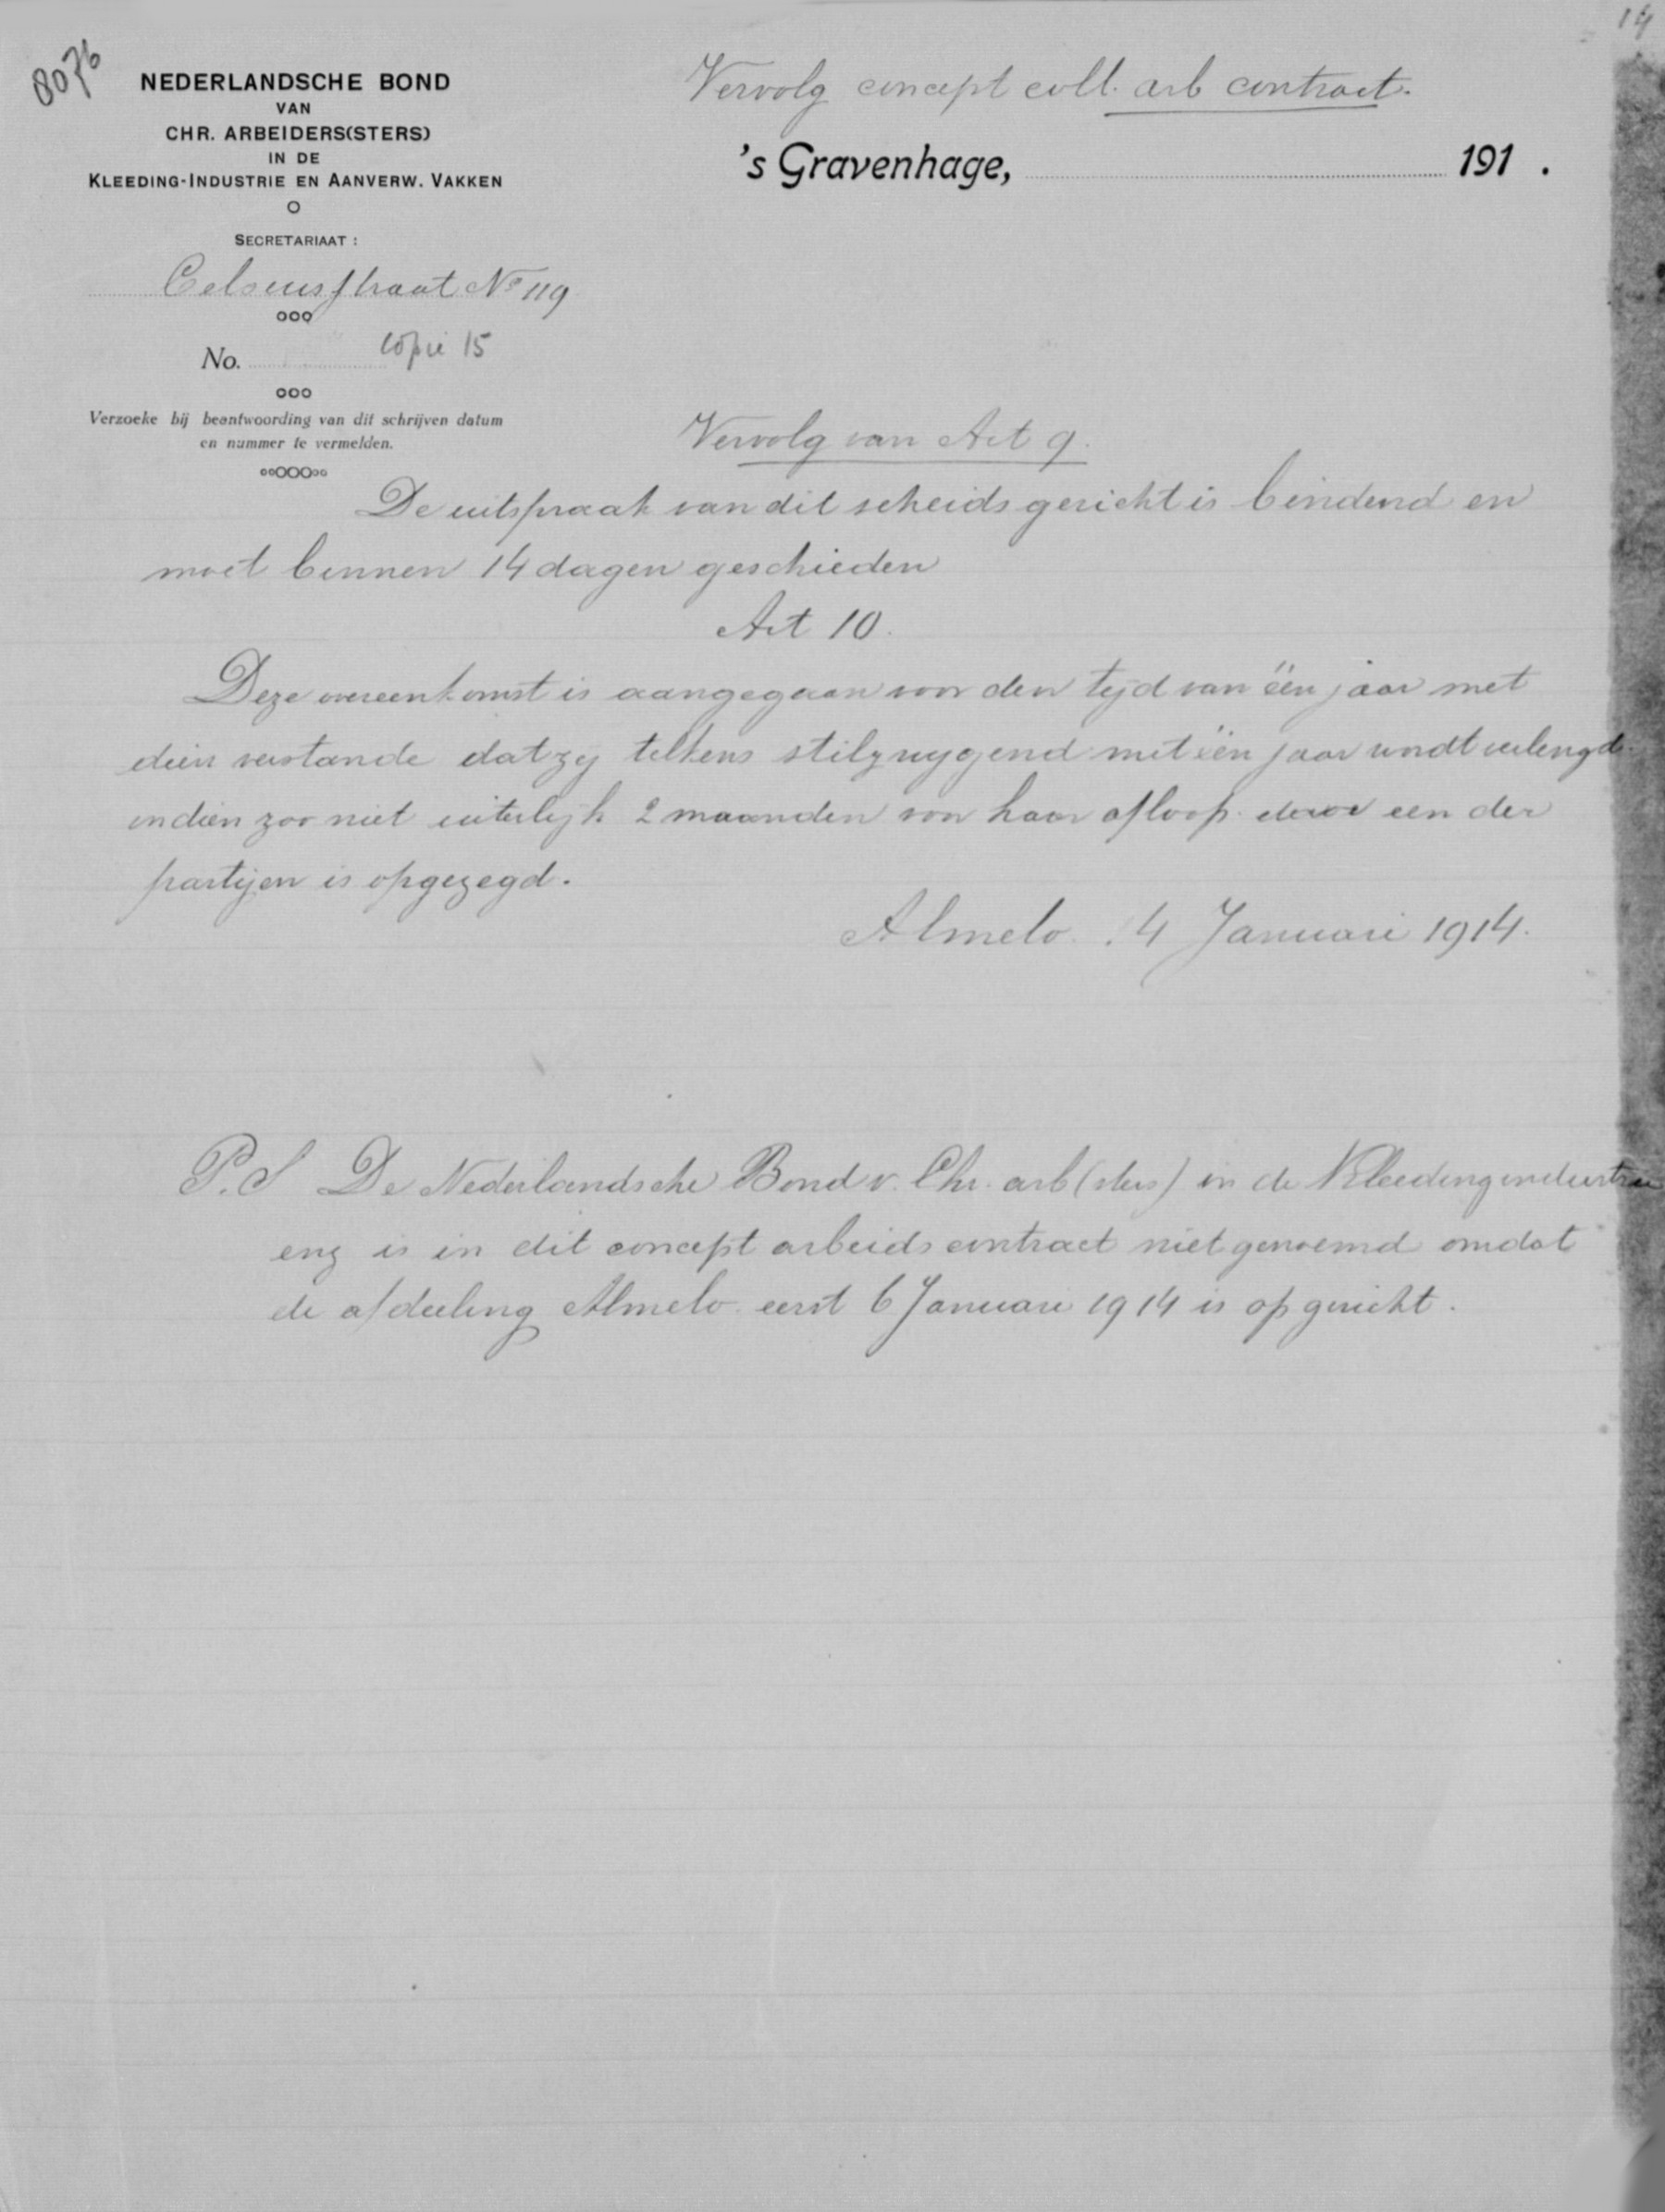 14
8076
NEDERLANDSCHE BOND
VAN
CHR. ARBEIDERS(STERS)
IN DE
KLEEDING-INDUSTRIE EN AANVERW. VAKKEN
SECRETARIAAT :
Celsiusstraat No 119
No. copie 15
Verzoeke bij beantwoording van dit schrijven datum
en nummer te vermelden.
Vervolg concept coll. arb contract.
's Gravenhage, 191 .
Vervolg van Art 9.
De uitspraak van dit scheidsgericht is bindend en
moet binnen 14 dagen geschieden
Art 10.
Deze overeenkomst is aangegaan voor den tijd van één jaar met
dien verstande dat zij telkens stilzwijgend met één jaar wordt verlengd
indien zoo niet uiterlijk 2 maanden voor haar afloop door een der
partijen is opgezegd.
Almelo 14 Januari 1914.
P.S De Nederlandsche Bond v. Chr. arb(sters) in de Kleedingindustrie
enz is in dit concept arbeidscontract niet genoemd omdat
de afdeeling Almelo eerst 6 Januari 1914 is opgericht.